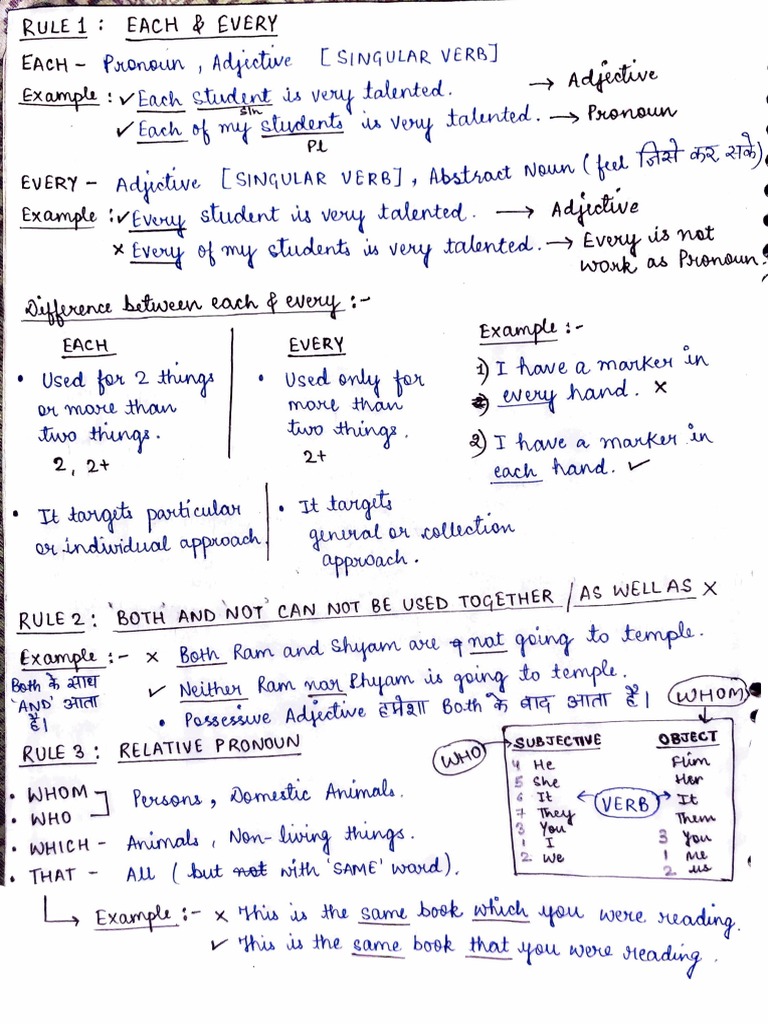 RULE 1 : EACH & EVERY
EACH – Pronoun, Adjective [SINGULAR VERB]
Example : ✓ Each student is very talented. → Adjective
sin
✓ Each of my students is very talented. → Pronoun
Pl
EVERY – Adjective [SINGULAR VERB], Abstract Noun (feel जिसे कर सके)
Example : ✓ Every student is very talented. → Adjective
× Every of my students is very talented. → Every is not
work as Pronoun.
Difference between each & every :-
EACH
• Used for 2 things
or more than
two things.
2, 2+
EVERY
• Used only for
more than
two things.
2+
Example :-
1) I have a marker in
every hand. ×
2) I have a marker in
each hand. ✓
• It targets particular
or individual approach.
• It targets
general or collection
approach.
RULE 2 : 'BOTH' AND 'NOT' CAN NOT BE USED TOGETHER / AS WELL AS ×
Example :- × Both Ram and Shyam are not going to temple.
✓ Neither Ram nor Shyam is going to temple.
Both के साथ
'AND' आता
है।
• Possessive Adjective हमेशा Both के बाद आता है।
RULE 3 : RELATIVE PRONOUN
• WHOM
• WHO
Persons, Domestic Animals.
• WHICH – Animals, Non-living things.
• THAT – All (but not with 'SAME' word).
WHO
WHOM
SUBJECTIVE
4 He
5 She
6 It
7 They
3 You
1 I
2 We
VERB
OBJECT
Him
Her
It
Them
3 You
1 Me
2 us
Example :- × This is the same book which you were reading.
✓ This is the same book that you were reading.